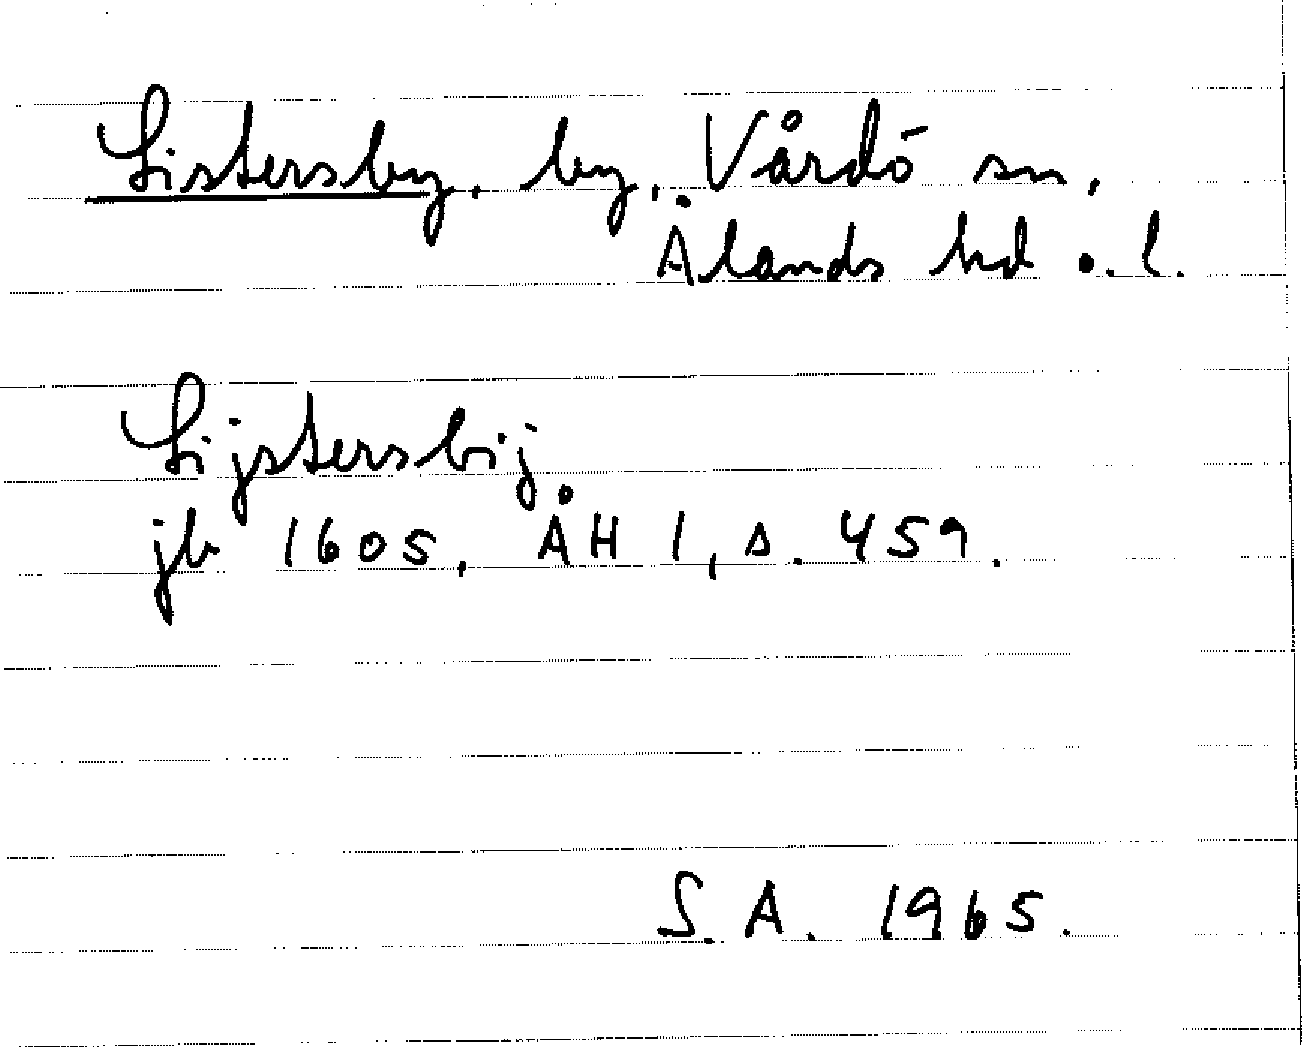 Listersby, by, Vårdö sn,
Ålands hd o. l.
Lijstersbij
jb 1605, ÅH 1, s. 459.
S. A. 1965.